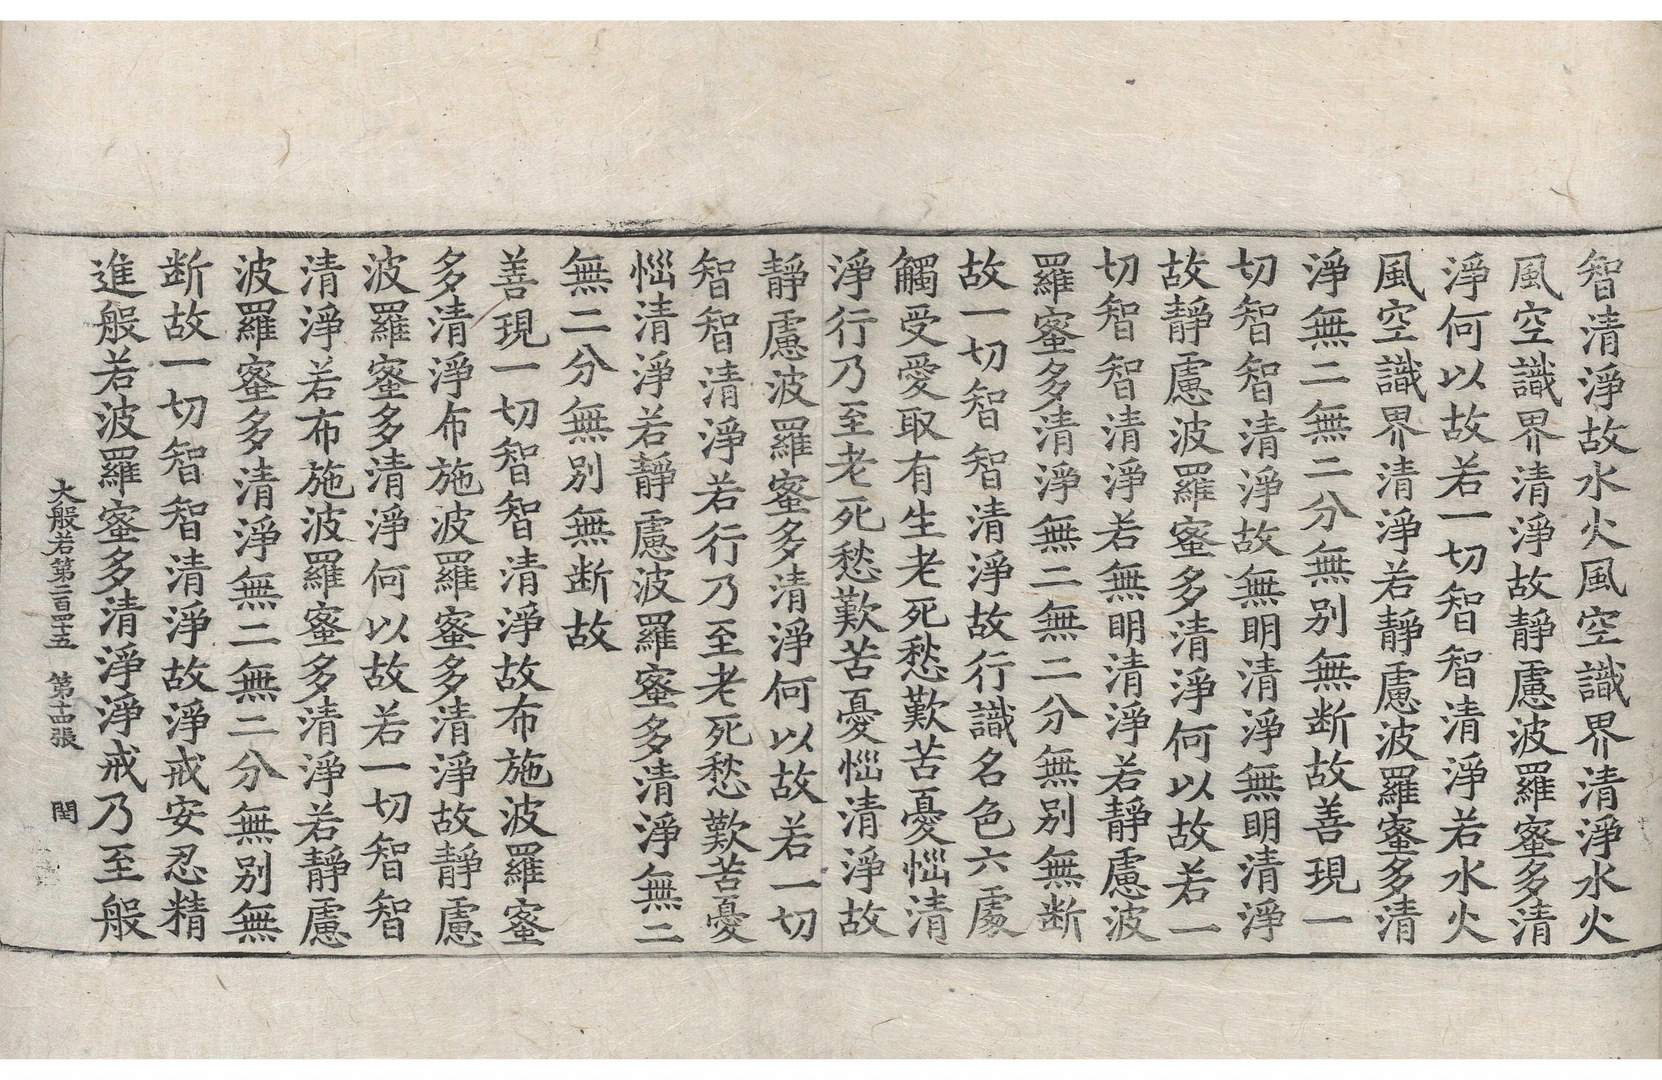 智清淨故水火風空識界清淨水火
風空識界清淨故靜慮波羅蜜多清
淨何以故若一切智智清淨若水火
風空識界清淨若靜慮波羅蜜多清
淨無二無二分無別無断故善現一
切智智清淨故無明清淨無明清淨
故靜慮波羅蜜多清淨何以故若一
切智智清淨若無明清淨若靜慮波
羅蜜多清淨無二無二分無別無断
故一切智智清淨故行識名色六處
觸受愛取有生老死愁歎苦憂惱清
淨行乃至老死愁歎苦憂惱清淨故
靜慮波羅蜜多清淨何以故若一切
智智清淨若行乃至老死愁歎苦憂
惱清淨若靜慮波羅蜜多清淨無二
無二分無別無断故
善現一切智智清淨故布施波羅蜜
多清淨布施波羅蜜多清淨故靜慮
波羅蜜多清淨何以故若一切智智
清淨若布施波羅蜜多清淨若靜慮
波羅蜜多清淨無二無二分無別無
断故一切智智清淨故淨戒安忍精
進般若波羅蜜多清淨淨戒乃至般
大般若第二百四十五 第十四張 閏